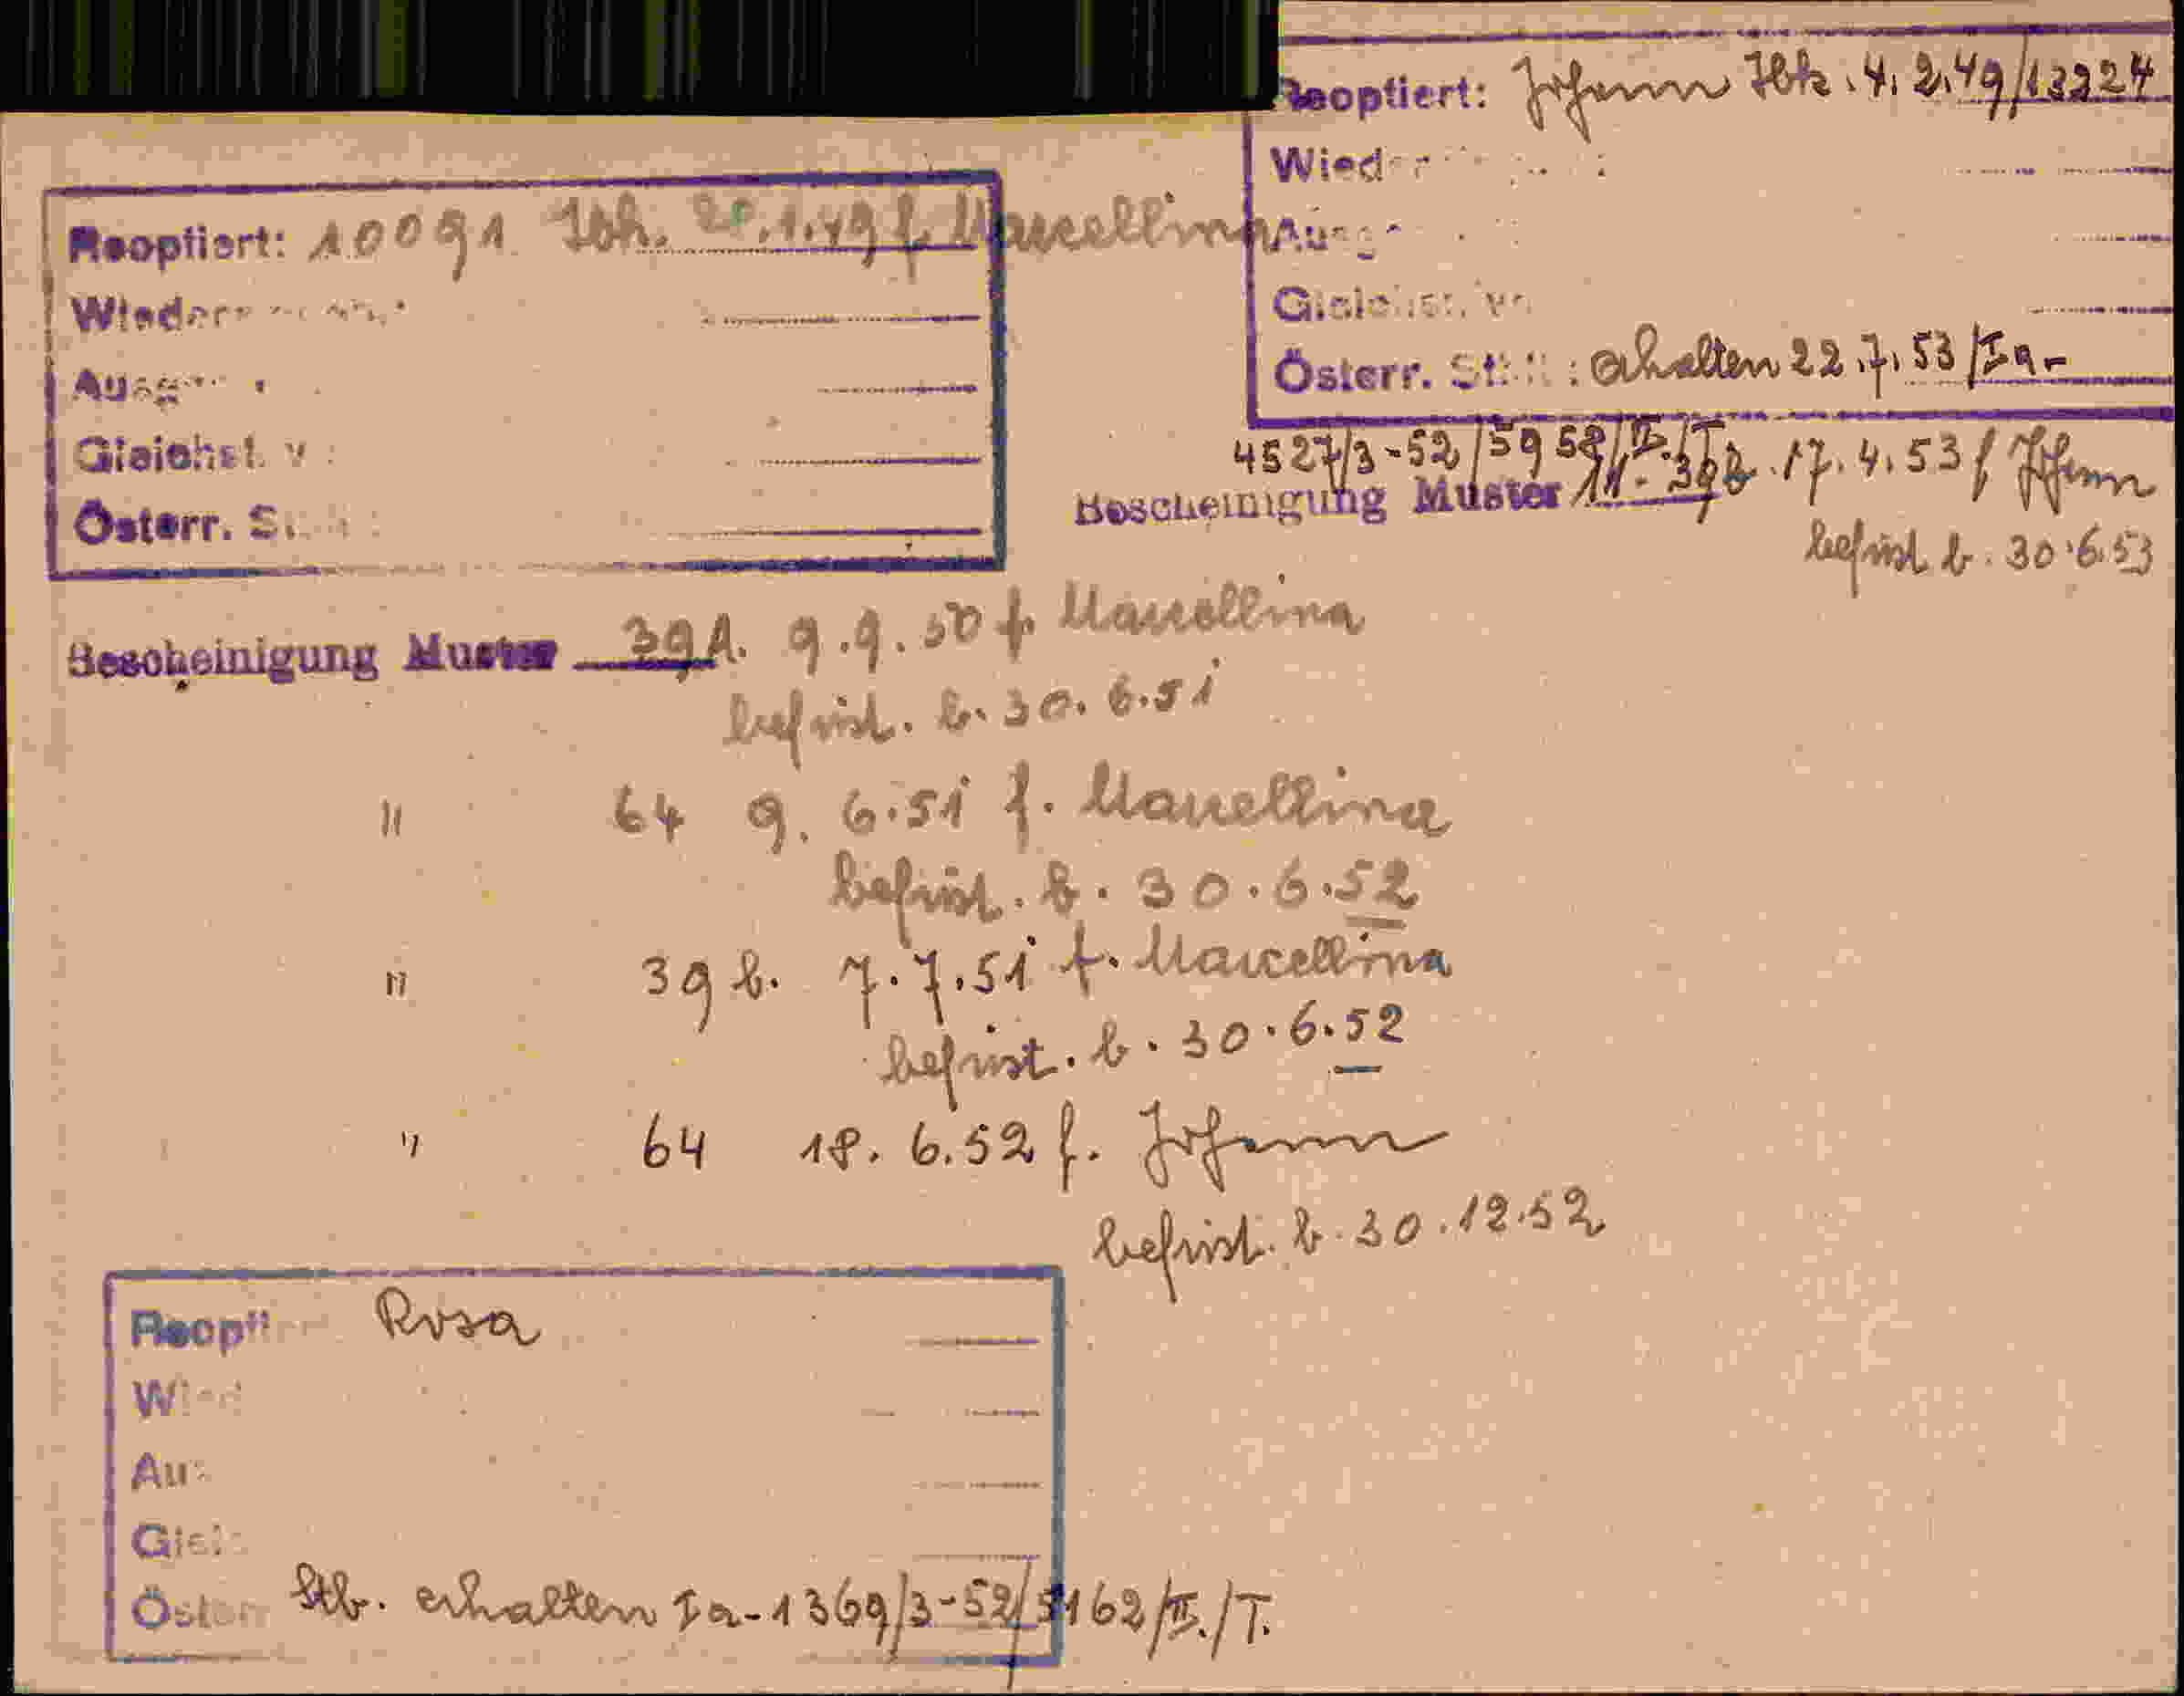 Reoptiert: Johann Ibk. 4. 2. 49/13224
Wied
Ausg
Gleichst. v
Österr. St : erhalten 22. 7. 53/Ia-
4527/3-52/5958/II./T.
Bescheinigung Muster 39b. 17. 4. 53 f Johann
befrist b. 30.6.53
Reoptiert: 10091 Ibk. .1.49 f. Marcellina
Wieder
Ausg
Gleichst. v :
Österr. S :
Bescheinigung Muster 39A. 9.9.50 f. Marcellina
befrist. b. 30. 6.51
" 64 9. 6.51 f. Marcellina
befrist. b. 30.6.52
" 39 b. 7.7.51 f. Marcellina
befrist. b. 30.6.52
" 64 18. 6.52 f. Johann
befrist. b. 30.12.52
Reopti Rosa
Wied
Aus
Gleic
Österr Stb. erhalten Ia-1369/3-52/5162/II./T.